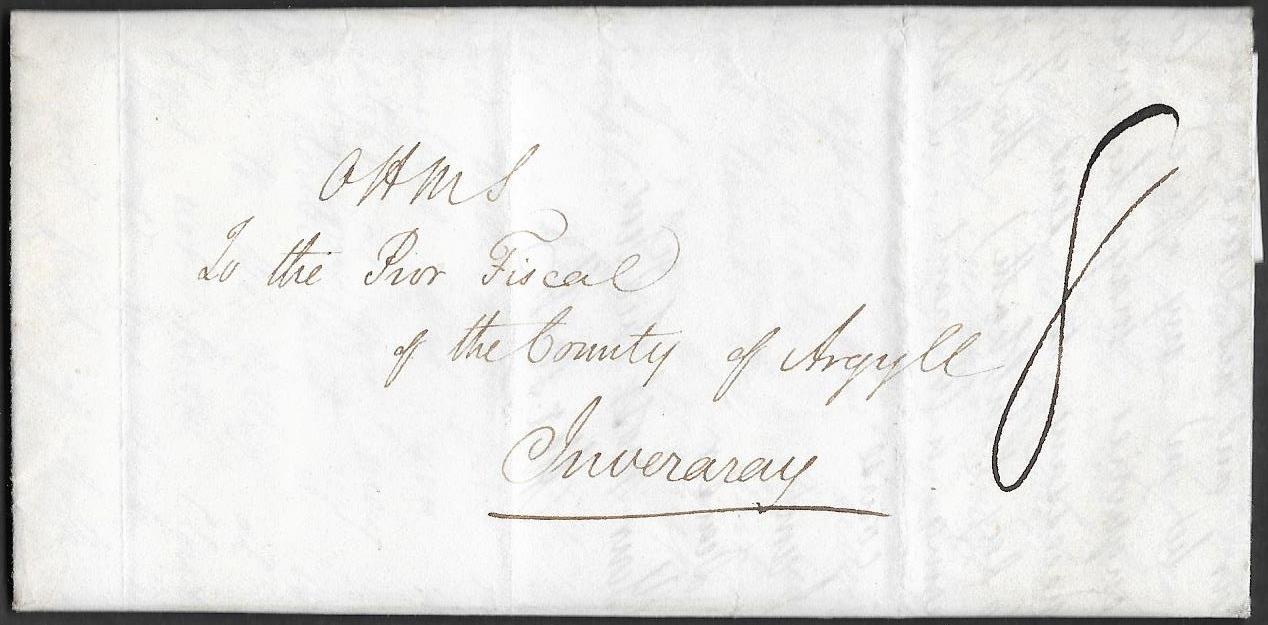 OHMS
To the Pror Fiscal
of the County of Argyll
Inveraray
8